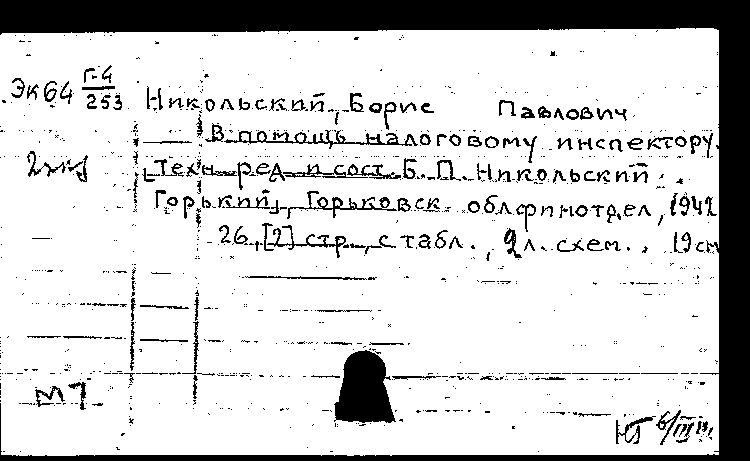 Эк64 Г-4/253
Никольский, Борис Павлович
В помощь налоговому инспектору.
2экз
[Техн. ред. и сост. Б. П. Никольский.
Горький], Горьковск. облфинотдел, 1942
26, [2] стр., с табл., 2 л. схем. 19 см
М7